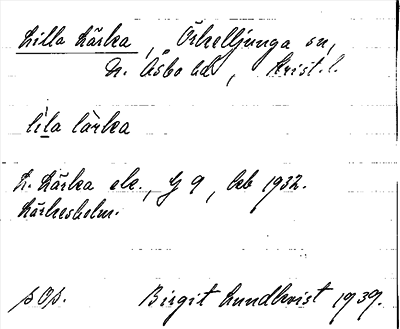 Lilla Lärka, Örkelljunga sn,
N. Åsbo hd, Krist. l.
lila lärka
L. Lärka ek., G 9, kb 1932.
Lärkesholm.
sOp. Birgit Lundkvist 1939.